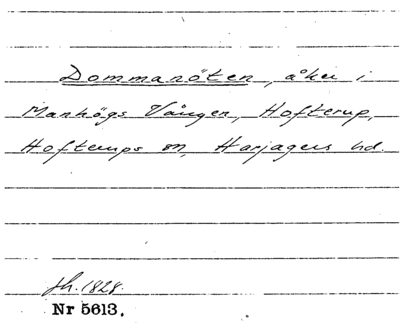 Dommanöten, åker i
Manhögs Vången, Hofterup,
Hofterups sn, Harjagers hd.
sk. 1828.
Nr 5613.